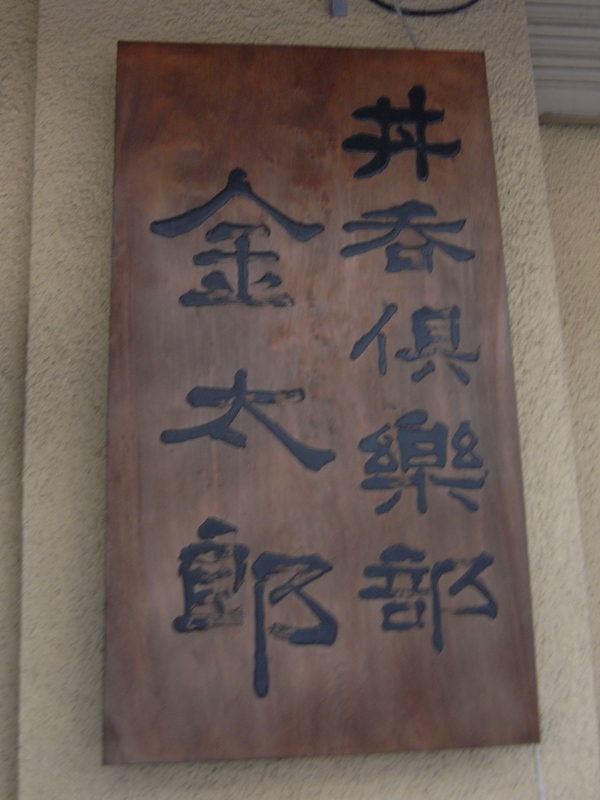 丼呑倶樂部
金太郎